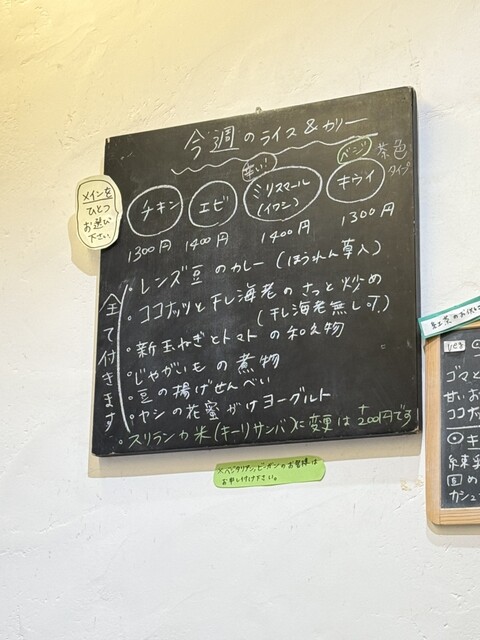 今週のライス&カリー
メインを
ひとつ
お選び
下さい
チキン
1300円
エビ
1400円
辛い!
ミリスマール
(イワシ)
1400円
ベジ
キウイ
茶色
タイプ
1300円
全て付きます
・レンズ豆のカレー(ほうれん草入)
・ココナッツと干し海老のさっと炒め
(干し海老無し可)
・新玉ねぎとトマトの和え物
・じゃがいもの煮物
・豆の揚げせんべい
・ヤシの花蜜がけヨーグルト
・スリランカ米(キーリサンバ)に変更は+200円です!
※ベジタリアン、ビーガンのお客様は
お申し付け下さい。
ゴマと
甘いお
ココナッ
糸束
固め
カシュー